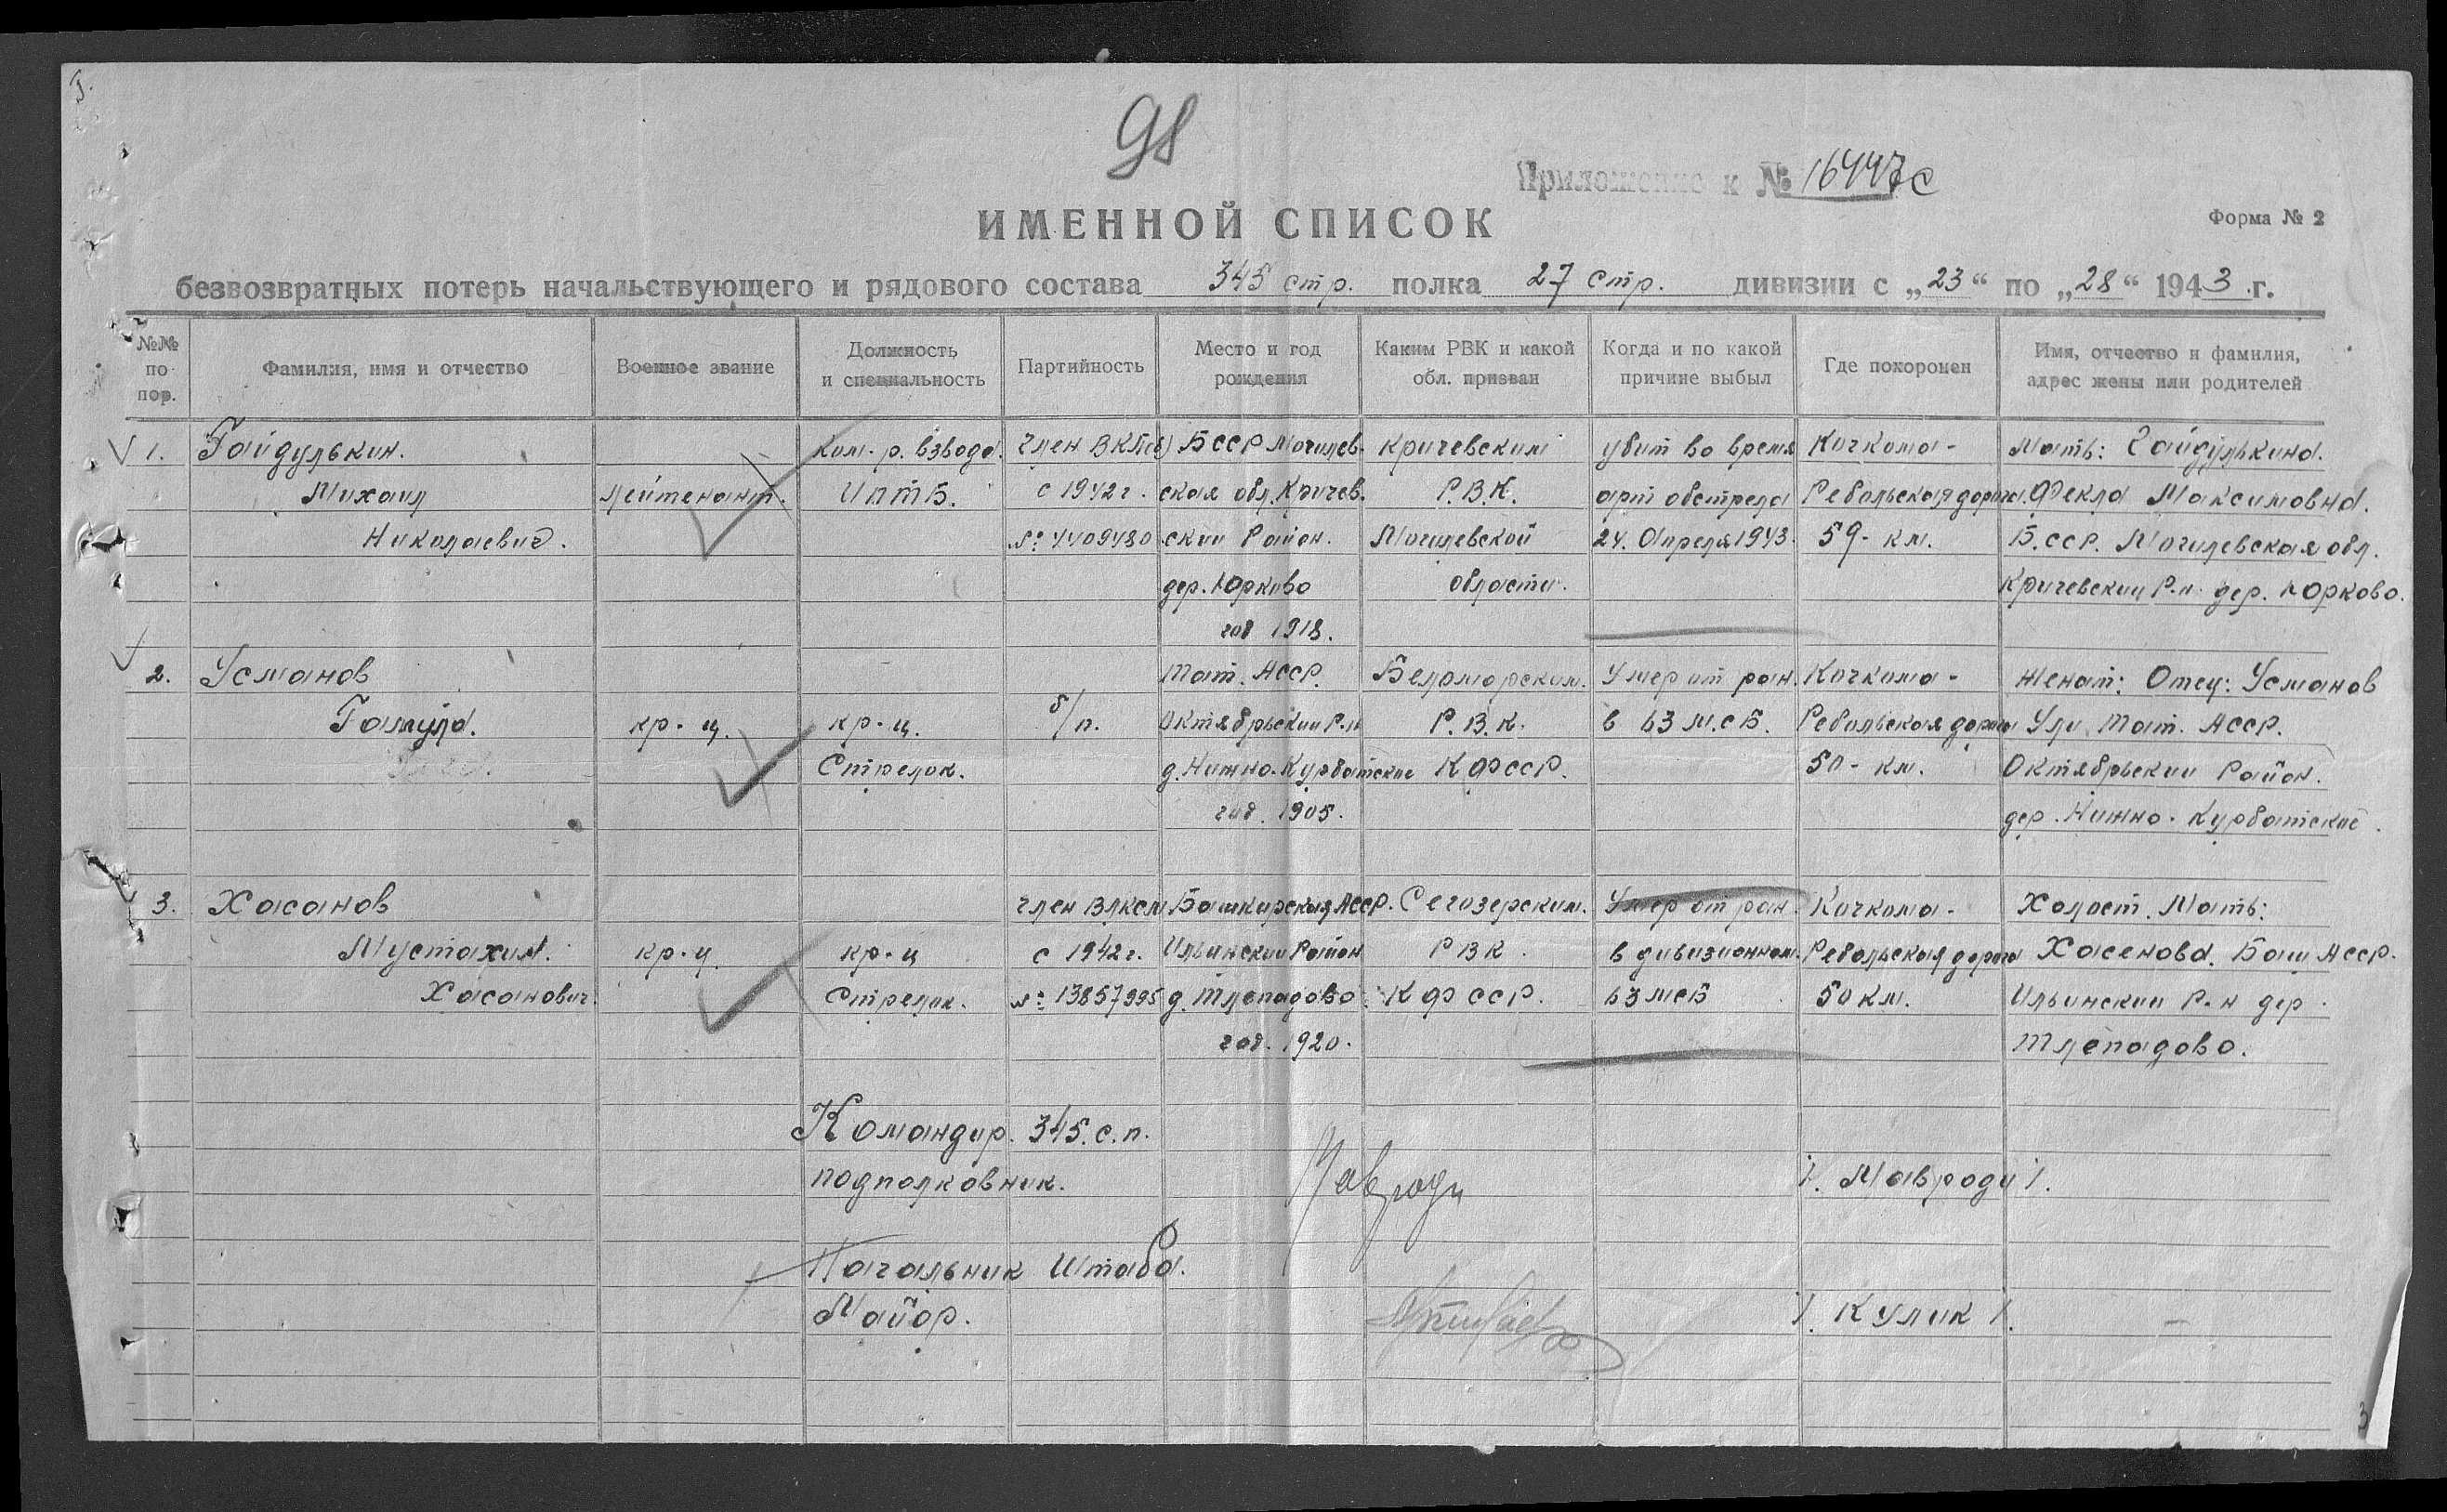 3.
98
Приложение к № 16447с
ИМЕННОЙ СПИСОК
Форма № 2
безвозвратных потерь начальствующего и рядового состава 345 стр. полка 27 стр. дивизии с „23“ по „28“ 1943 г.
№№ по пор.
Фамилия, имя и отчество
Военное звание
Должность и специальность
Партийность
Место и год рождения
Каким РВК и какой обл. призван
Когда и по какой причине выбыл
Где похоронен
Имя, отчество и фамилия, адрес жены или родителей
1. Гайдулькин. ком. р. взвода. член ВКП(б) БССР Могилев- Кричевским убит во время Кочкома- Мать: Гайдулькина.
Михаил лейтенант. ИПТБ. с 1942 г. ская обл. Кричев- Р.В.К. арт обстрела Ребольская дорога. Фекла Максимовна.
Николаевич. №: 4409480 ский Район. Могилевской 24. Апреля 1943. 59- км. Б.ССР. Могилевская обл.
дер. Юрково области. Кричевский Р-н дер. Юрково.
год 1918.
2. Усманов Тат. АССР. Беломорским. Умер от ран. Кочкома- Женат: Отец: Усманов
Галиула. кр-ц. кр-ц. б/п. Октябрьский Р-н Р.В.К. в 63 м.с.Б. Ребольская дорога Ули Тат. АССР.
Стрелок. д. Нижно-Курбатские КФССР. 50- км. Октябрьский Район.
год. 1905. дер. Нижно-Курбатские.
3. Хасанов член ВЛКСМ Башкирская АССР. Сегозерским. Умер от ран. Кочкома- Холост. Мать:
Мустахим. кр-ц. кр-ц с 1942 г. Ильинский Район РВК. в дивизионном. Ребольская дорога Хасенова. Баш АССР.
Хасанович. Стрелок. №: 13857995 д. Тляпадово. КФССР. 63 мсБ 50 км. Ильинский Р-н дер.
год. 1920. Тляпадово.
Командир. 345. с.п.
подполковник. Мавроди /. Мавроди /.
Начальник Штаба.
Майор. /. Кулик /.
3